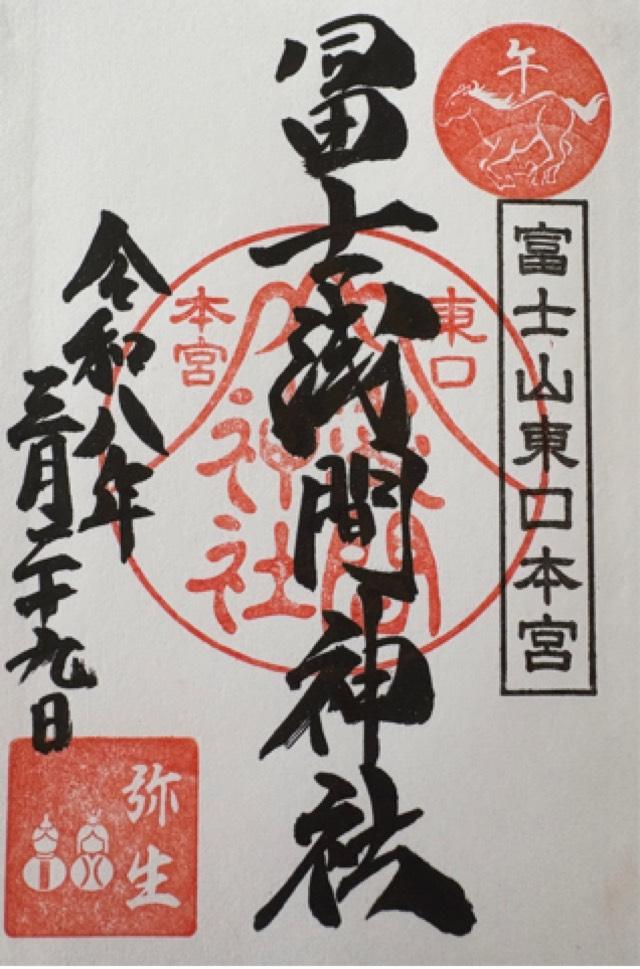 午
富士山東口本宮
冨士浅間神社
東口
本宮
浅間
神社
令和八年
三月二十九日
弥生